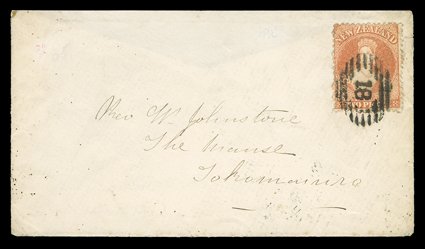 NEW ZEALAND
18
Rev W. Johnstone
The Manse
Tokomairiro